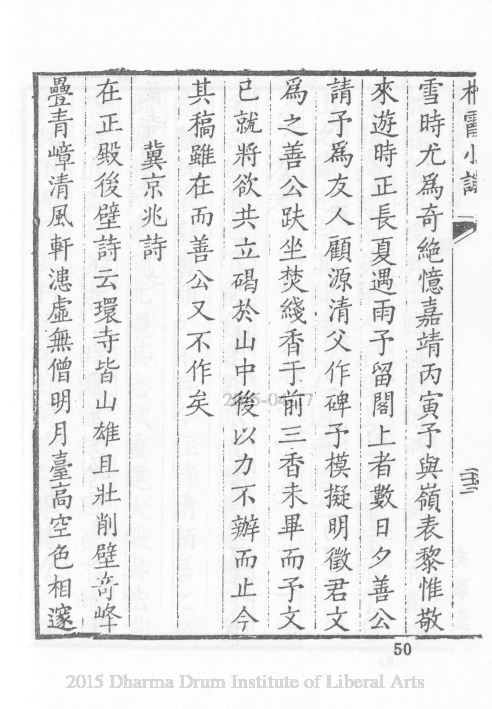 棲霞小誌
雪時尤爲奇絶憶嘉靖丙寅予與嶺表黎惟敬
來遊時正長夏遇雨予留閣上者數日夕善公
請予爲友人顧源清父作碑予模擬明徵君文
爲之善公趺坐焚綫香于前三香未畢而予文
已就將欲共立碣於山中後以力不辦而止今
其稿雖在而善公又不作矣
冀京兆詩
在正殿後壁詩云環寺皆山雄且壯削壁奇峰
疊青嶂清風軒漶虛無僧明月臺高空色相邃
50
2015 Dharma Drum Institute of Liberal Arts